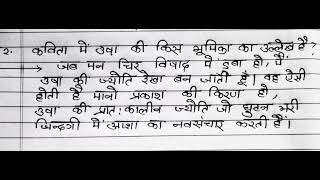 २. कविता में उषा की किस भूमिका का उल्लेख है?
→ जब मन चिर विषाद में डुबा हो, मैं
उषा की ज्योति रेखा बन जाती हूँ। वह ऐसी
होती है मानो प्रकाश की किरण हो,
उषा की प्रात: कालीन ज्योति जो घुटन भरी
जिन्दगी में आशा का नवसंचार करती हैं।